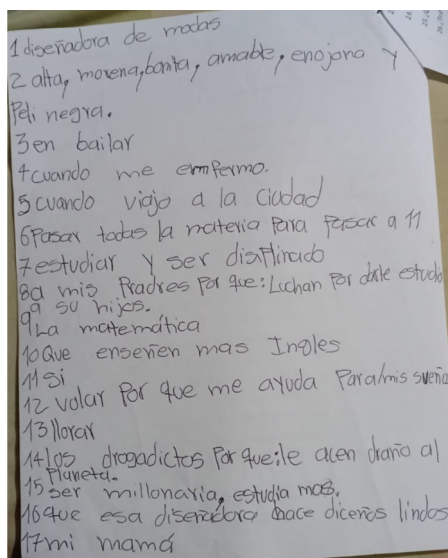 1 diseñadora de modas
2 alta, morena, bonita, amable, enojona y
Peli negra.
3 en bailar
4 cuando me emfermo.
5 cuando viajo a la ciudad
6 Pasar todas la materia Para Pasar a 11
7 estudiar y ser disPlinado
8 a mis Pradres Por que: Luchan Por darle estudio
a su hijos.
9 La matemática
10 Que enseñen mas Ingles
11 Si
12 volar Por que me ayuda Para mis sueño
13 llorar
14 los drogadictos Por que: le acen draño al
Planeta.
15 ser millonaria, estudia mas.
16 que esa diseñadora hace diceños lindos
17 mi mamá